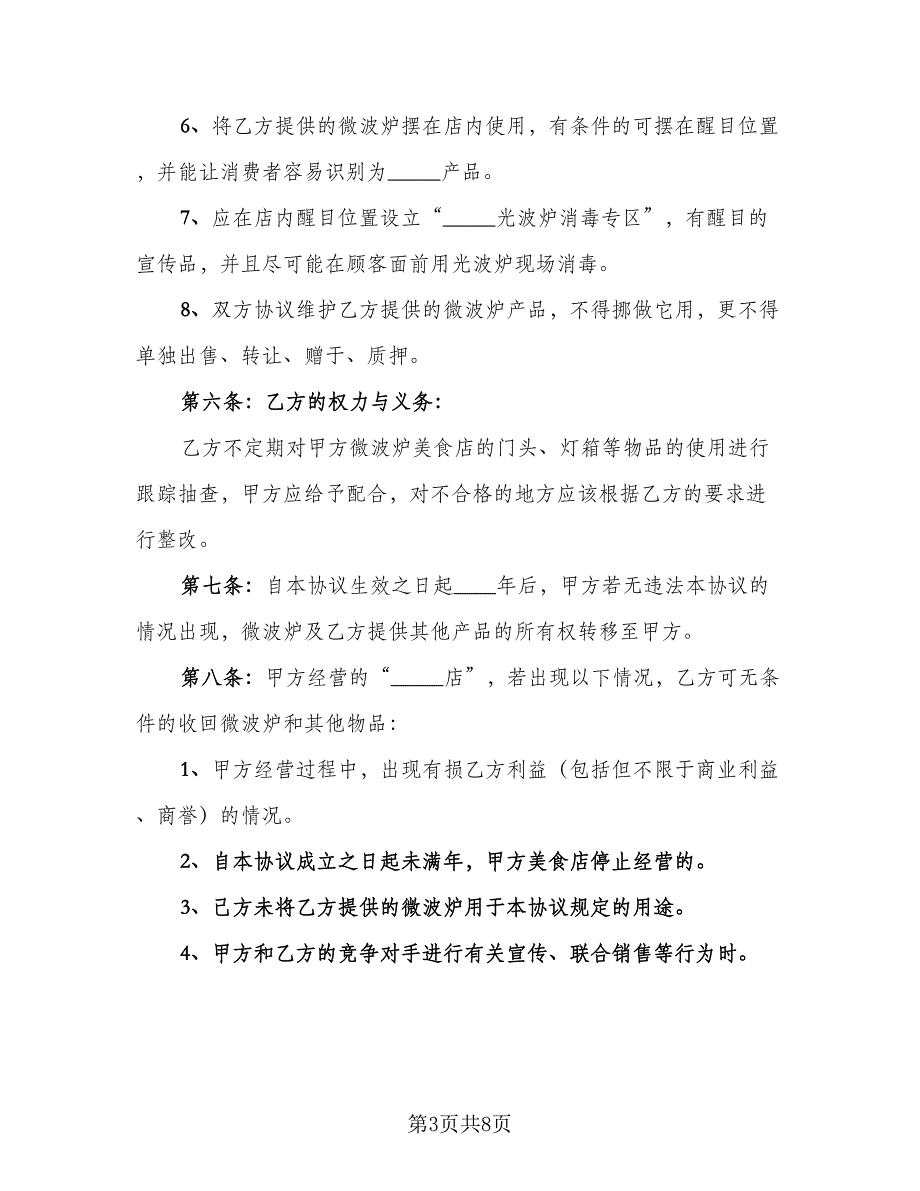 6、将乙方提供的微波炉摆在店内使用，有条件的可摆在醒目位置
，并能让消费者容易识别为_____产品。
7、应在店内醒目位置设立“_____光波炉消毒专区”，有醒目的
宣传品，并且尽可能在顾客面前用光波炉现场消毒。
8、双方协议维护乙方提供的微波炉产品，不得挪做它用，更不得
单独出售、转让、赠于、质押。
第六条：乙方的权力与义务：
乙方不定期对甲方微波炉美食店的门头、灯箱等物品的使用进行
跟踪抽查，甲方应给予配合，对不合格的地方应该根据乙方的要求进
行整改。
第七条：自本协议生效之日起____年后，甲方若无违法本协议的
情况出现，微波炉及乙方提供其他产品的所有权转移至甲方。
第八条：甲方经营的“_____店”，若出现以下情况，乙方可无条
件的收回微波炉和其他物品：
1、甲方经营过程中，出现有损乙方利益（包括但不限于商业利益
、商誉）的情况。
2、自本协议成立之日起未满年，甲方美食店停止经营的。
3、己方未将乙方提供的微波炉用于本协议规定的用途。
4、甲方和乙方的竞争对手进行有关宣传、联合销售等行为时。
第3页共8页